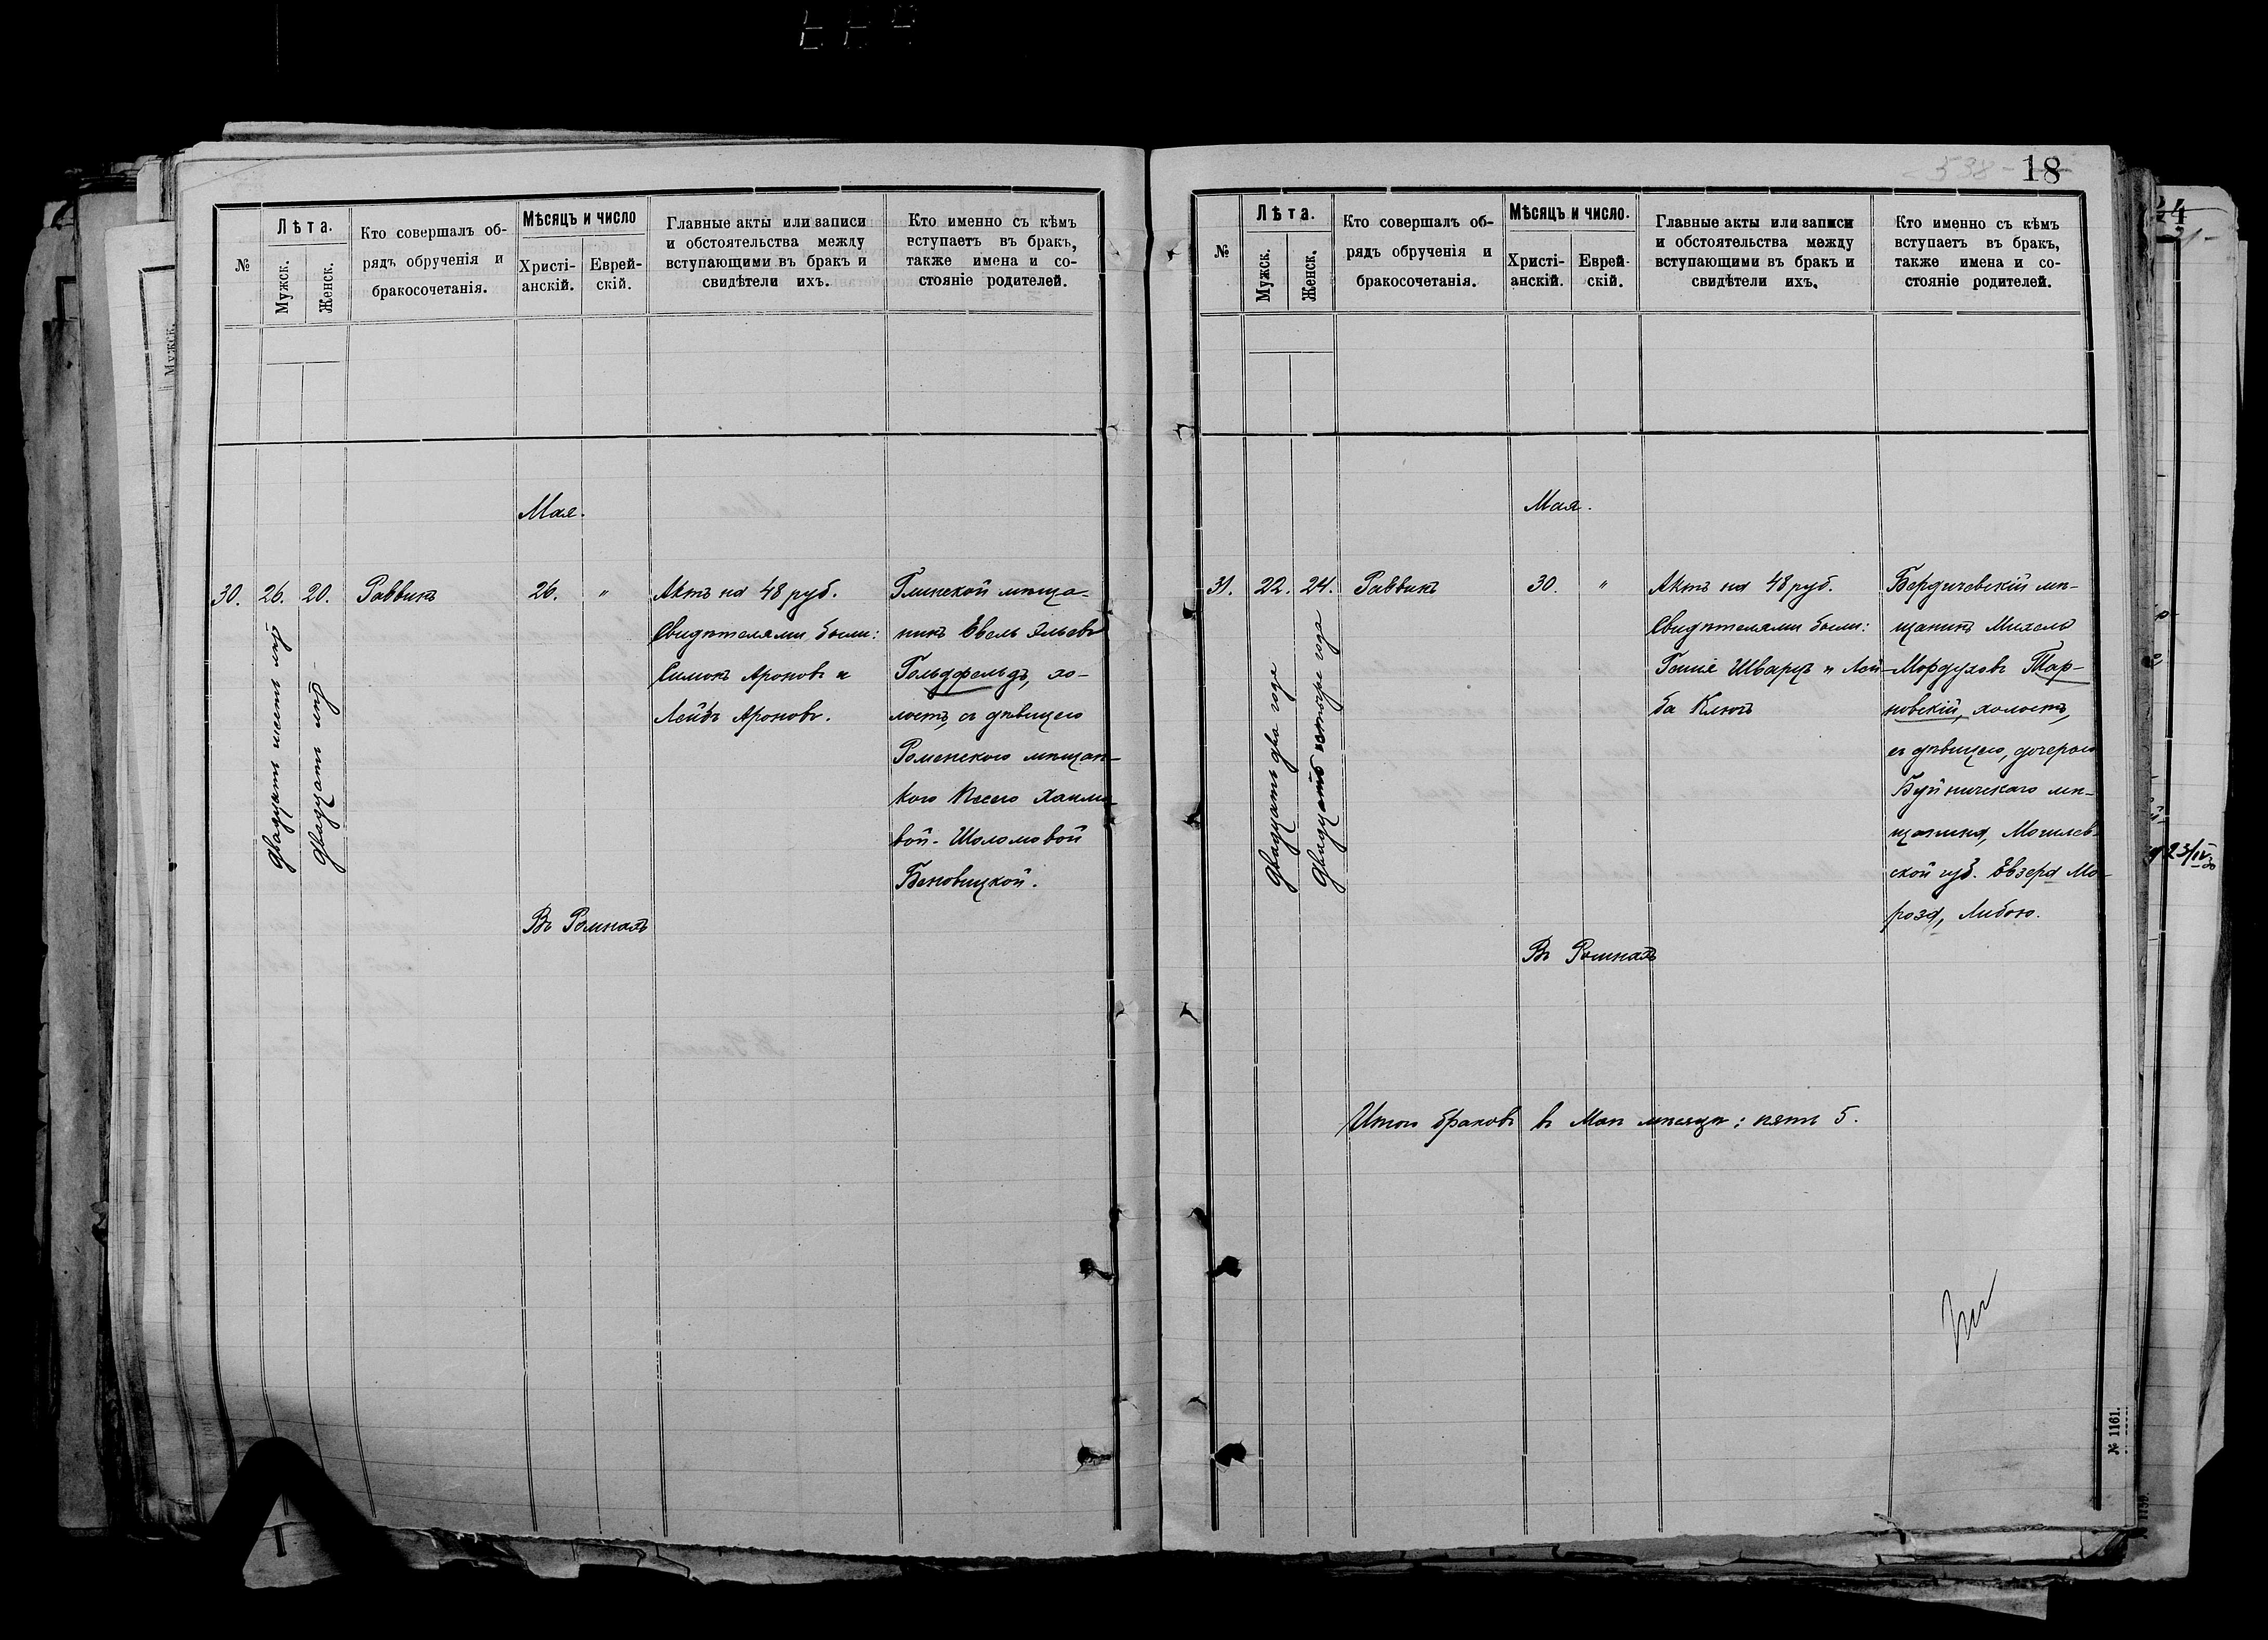 №
Лѣта.
Мужск.
Женск.
Кто совершалъ об-
рядъ обрученія и
бракосочетанія.
Мѣсяцъ и число
Христі-
анскій.
Еврей-
скій.
Главные акты или записи
и обстоятельства между
вступающими въ бракъ и
свидѣтели ихъ.
Кто именно съ кѣмъ
вступаетъ въ бракъ,
также имена и со-
стояніе родителей.
Мая.
30. 26. 20. Раввинъ 26. "
Двадцать шесть лѣтъ
Двадцать лѣтъ
Актъ на 48 руб.
Свидѣтелями были:
Симонъ Ароновъ и
Лейбъ Ароновъ.
Глинской мѣща-
нинъ Евель Эльевъ
Гольдфельдъ, хо-
лостъ, съ дѣвицею
Роменскою мѣщан-
кою Песею Хаимо-
вой-Шоломовой
Беновицкой.
Въ Ромнахъ
18
№
Лѣта.
Мужск.
Женск.
Кто совершалъ об-
рядъ обрученія и
бракосочетанія.
Мѣсяцъ и число.
Христі-
анскій.
Еврей-
скій.
Главные акты или записи
и обстоятельства между
вступающими въ бракъ и
свидѣтели ихъ.
Кто именно съ кѣмъ
вступаетъ въ бракъ,
также имена и со-
стояніе родителей.
Мая.
31. 22. 24. Раввинъ 30. "
Двадцать два года
Двадцать четыре года
Актъ на 48 руб.
Свидѣтелями были:
Шварцъ и Лей-
ба Ключъ
Бердичевскій мѣ-
щанинъ Михель
Мордуховъ Тар-
новскій, холостъ,
съ дѣвицею, дочерью
Буйничскаго мѣ-
щанина, Могилев-
ской губ. Евзера Мо-
роза, Либою.
Въ Ромнахъ
Итого браковъ въ Маѣ мѣсяцѣ: пять 5.
№ 1161.